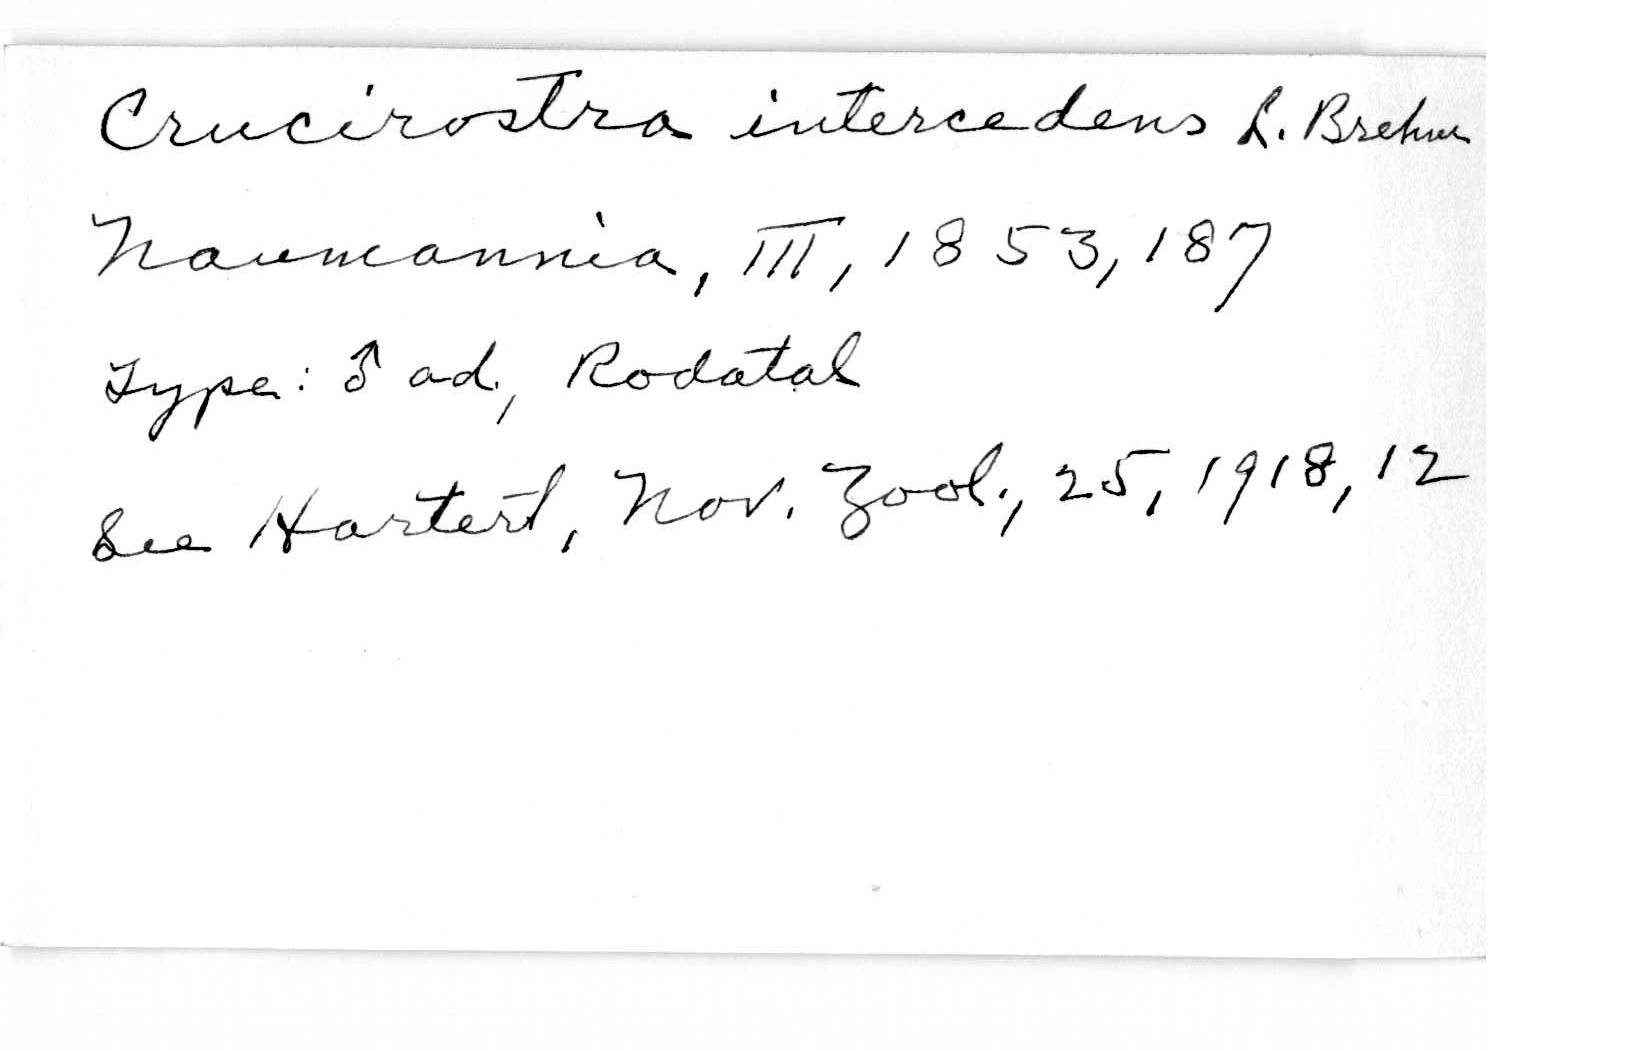 Crucirostra intercedens L. Brehm
Naumannia, III, 1853, 187
Type: ♂ ad., Rodatal
See Hartert, Nov. Zool., 25, 1918, 12